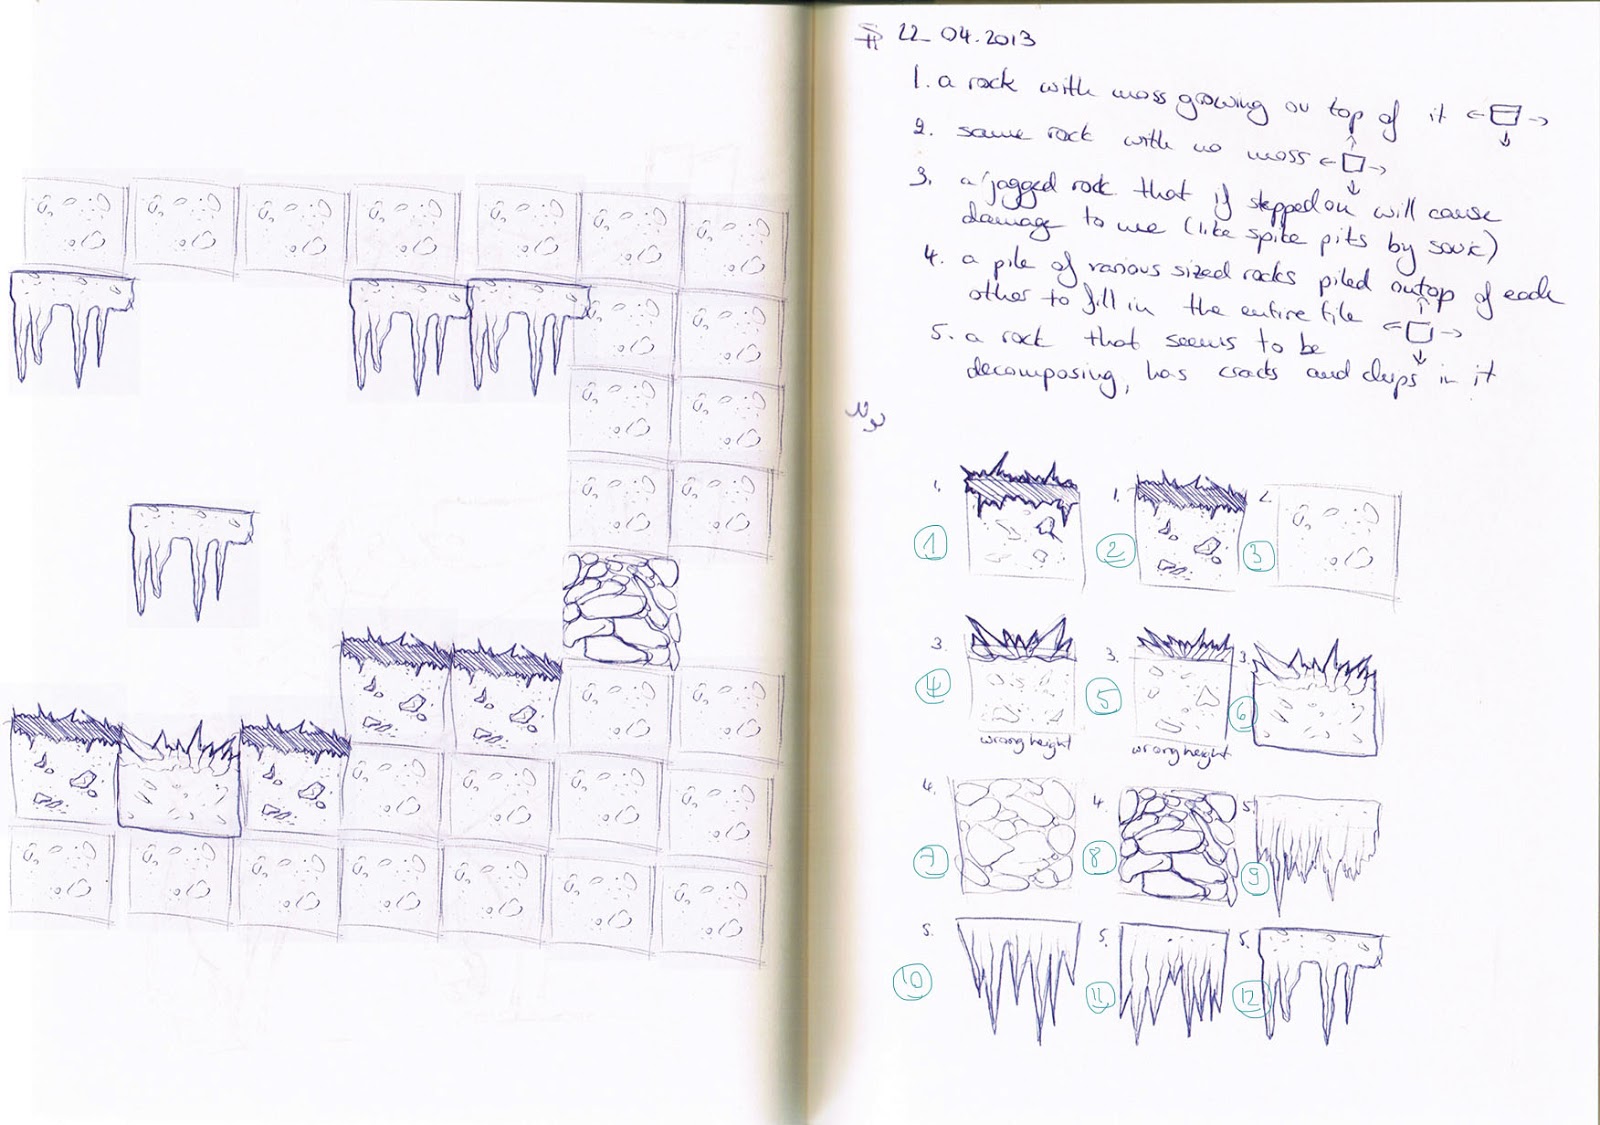 22 04.2013
1. a rock with moss growing on top of it
2. same rock with no moss
3. a jagged rock that if stepped on will cause
damage to me (like spike pits by sonic)
4. a pile of various sized rocks piled ontop of each
other to fill in the entire tile
5. a rock that seems to be
decomposing, has cracks and chips in it
1. 1. 2.
1 2 3
3. 3. 3.
4 5 6
wrong height wrong height
4. 4. 5.
7 8 9
5. 5. 5.
10 11 12